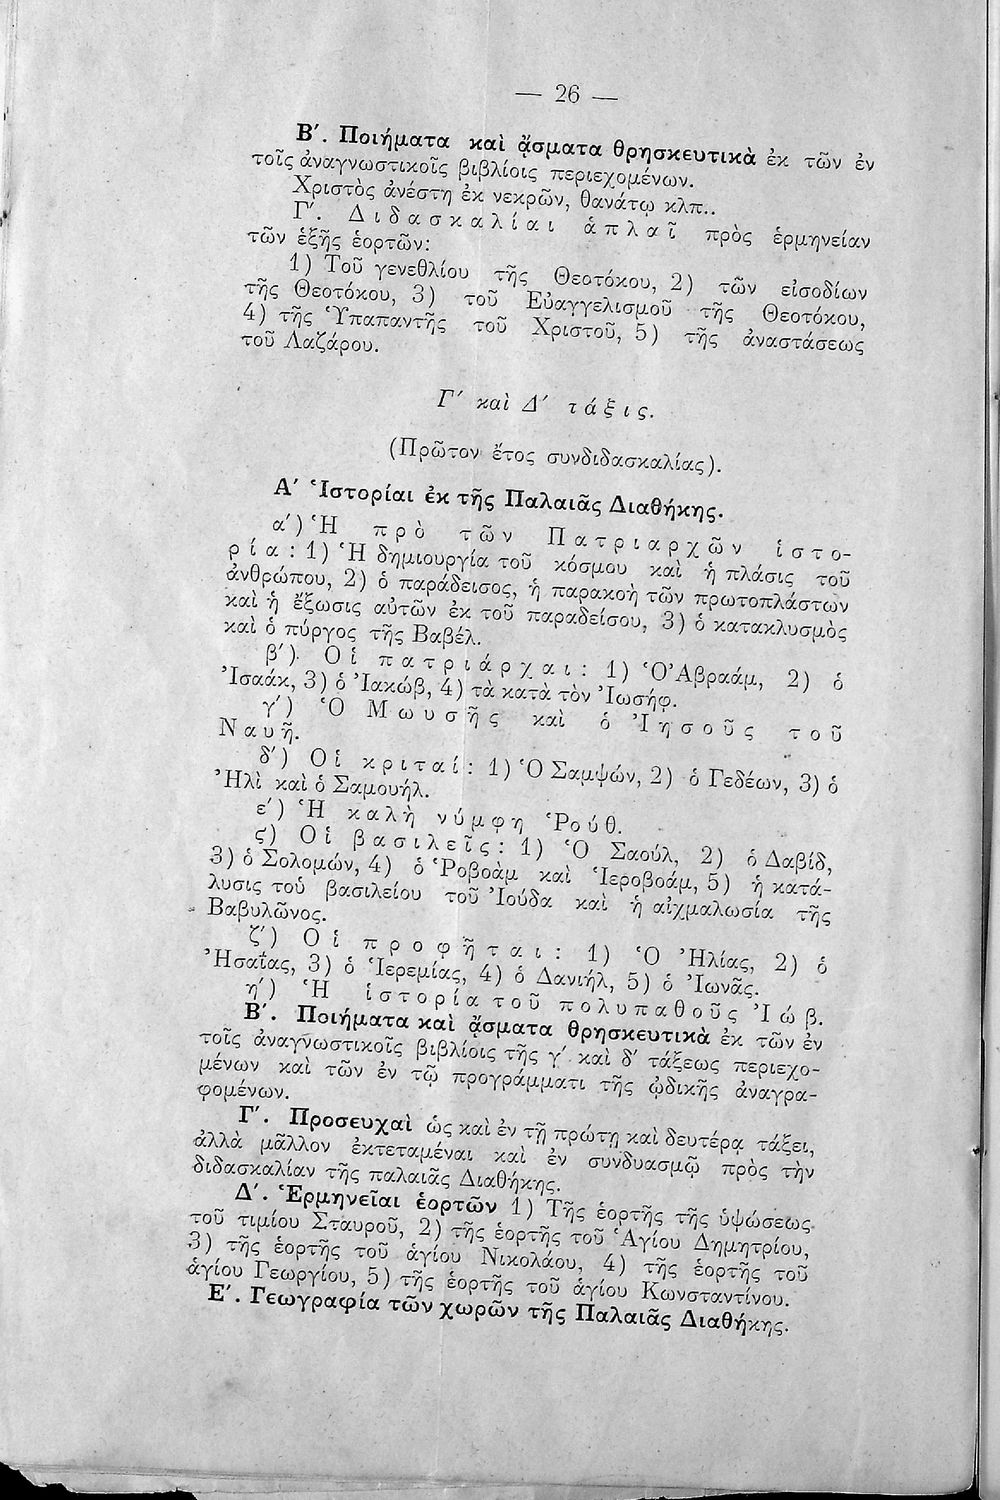 — 26 —
Β′. Ποιήματα καὶ ᾄσματα θρησκευτικὰ ἐκ τῶν ἐν
τοῖς ἀναγνωστικοῖς βιβλίοις περιεχομένων.
Χριστὸς ἀνέστη ἐκ νεκρῶν, θανάτῳ κλπ..
Γ′. Διδασκαλίαι ἁπλαῖ πρὸς ἑρμηνείαν
τῶν ἑξῆς ἑορτῶν:
1) Τοῦ γενεθλίου τῆς Θεοτόκου, 2) τῶν εἰσοδίων
τῆς Θεοτόκου, 3) τοῦ Εὐαγγελισμοῦ τῆς Θεοτόκου,
4) τῆς Ὑπαπαντῆς τοῦ Χριστοῦ, 5) τῆς ἀναστάσεως
τοῦ Λαζάρου.
Γ′ καὶ Δ′ τάξις.
(Πρῶτον ἔτος συνδιδασκαλίας).
Α′ Ἱστορίαι ἐκ τῆς Παλαιᾶς Διαθήκης.
α′) Ἡ πρὸ τῶν Πατριαρχῶν ἱστο-
ρία: 1) Ἡ δημιουργία τοῦ κόσμου καὶ ἡ πλάσις τοῦ
ἀνθρώπου, 2) ὁ παράδεισος, ἡ παρακοὴ τῶν πρωτοπλάστων
καὶ ἡ ἔξωσις αὐτῶν ἐκ τοῦ παραδείσου, 3) ὁ κατακλυσμὸς
καὶ ὁ πύργος τῆς Βαβέλ.
β′) Οἱ πατριάρχαι: 1) Ὁ Ἀβραάμ, 2) ὁ
Ἰσαάκ, 3) ὁ Ἰακώβ, 4) τὰ κατὰ τὸν Ἰωσήφ.
γ′) Ὁ Μωυσῆς καὶ ὁ Ἰησοῦς τοῦ
Ναυῆ.
δ′) Οἱ κριταί: 1) Ὁ Σαμψών, 2) ὁ Γεδέων, 3) ὁ
Ἠλὶ καὶ ὁ Σαμουήλ.
ε′) Ἡ καλὴ νύμφη Ῥούθ.
ς) Οἱ βασιλεῖς: 1) Ὁ Σαούλ, 2) ὁ Δαβίδ,
3) ὁ Σολομών, 4) ὁ Ῥοβοὰμ καὶ Ἱεροβοάμ, 5) ἡ κατά-
λυσις τοῦ βασιλείου τοῦ Ἰούδα καὶ ἡ αἰχμαλωσία τῆς
Βαβυλῶνος.
ζ′) Οἱ προφῆται: 1) Ὁ Ἠλίας, 2) ὁ
Ἠσαΐας, 3) ὁ Ἱερεμίας, 4) ὁ Δανιήλ, 5) ὁ Ἰωνᾶς.
η′) Ἡ ἱστορία τοῦ πολυπαθοῦς Ἰώβ.
Β′. Ποιήματα καὶ ᾄσματα θρησκευτικὰ ἐκ τῶν ἐν
τοῖς ἀναγνωστικοῖς βιβλίοις τῆς γ′ καὶ δ′ τάξεως περιεχο-
μένων καὶ τῶν ἐν τῷ προγράμματι τῆς ᾠδικῆς ἀναγρα-
φομένων.
Γ′. Προσευχαὶ ὡς καὶ ἐν τῇ πρώτῃ καὶ δευτέρᾳ τάξει,
ἀλλὰ μᾶλλον ἐκτεταμέναι καὶ ἐν συνδυασμῷ πρὸς τὴν
διδασκαλίαν τῆς παλαιᾶς Διαθήκης.
Δ′. Ἑρμηνεῖαι ἑορτῶν 1) Τῆς ἑορτῆς τῆς ὑψώσεως
τοῦ τιμίου Σταυροῦ, 2) τῆς ἑορτῆς τοῦ Ἁγίου Δημητρίου,
3) τῆς ἑορτῆς τοῦ ἁγίου Νικολάου, 4) τῆς ἑορτῆς τοῦ
ἁγίου Γεωργίου, 5) τῆς ἑορτῆς τοῦ ἁγίου Κωνσταντίνου.
Ε′. Γεωγραφία τῶν χωρῶν τῆς Παλαιᾶς Διαθήκης.